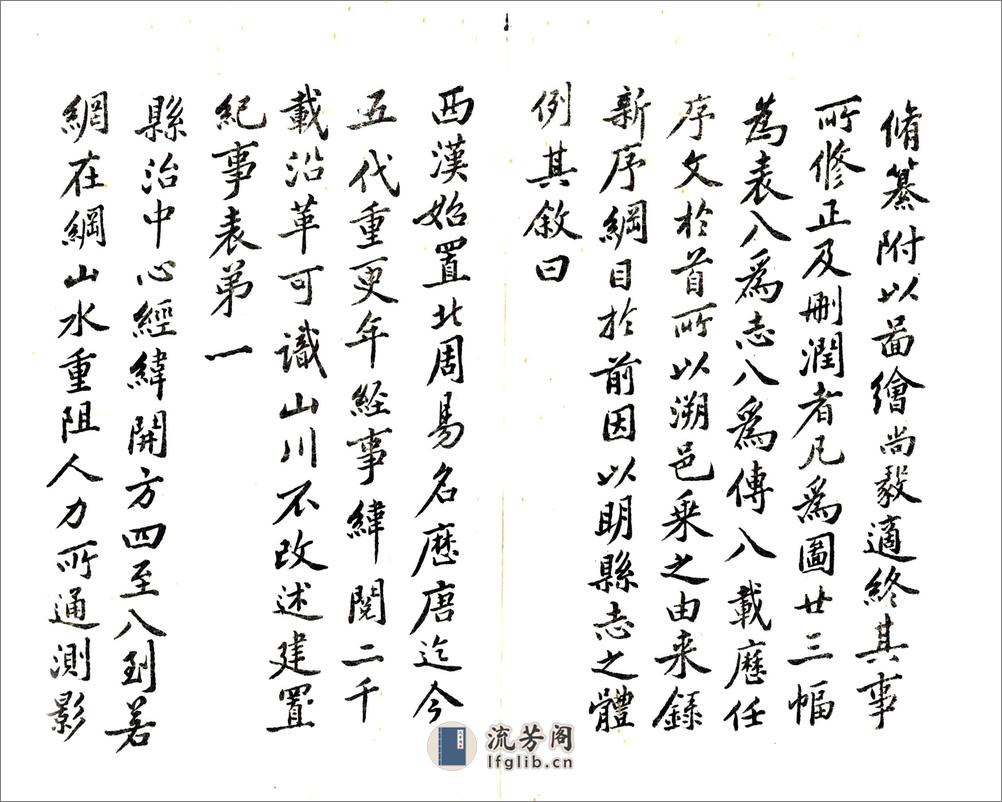 脩纂附以啚繪尚毅適終其事
所修正及刪潤者凡爲圖廿三幅
爲表八爲志八爲傳八載歷任
序文於首所以溯邑乘之由来錄
新序綱目於前因以明縣志之體
例其敘曰
西漢始置北周易名歷唐迄今
五代重更年經事緯閱二千
載沿革可識山川不改述建置
紀事表弟一
縣治中心經緯開方四至八到若
網在綱山水重阻人力所通測影
流芳阁
lfglib.cn